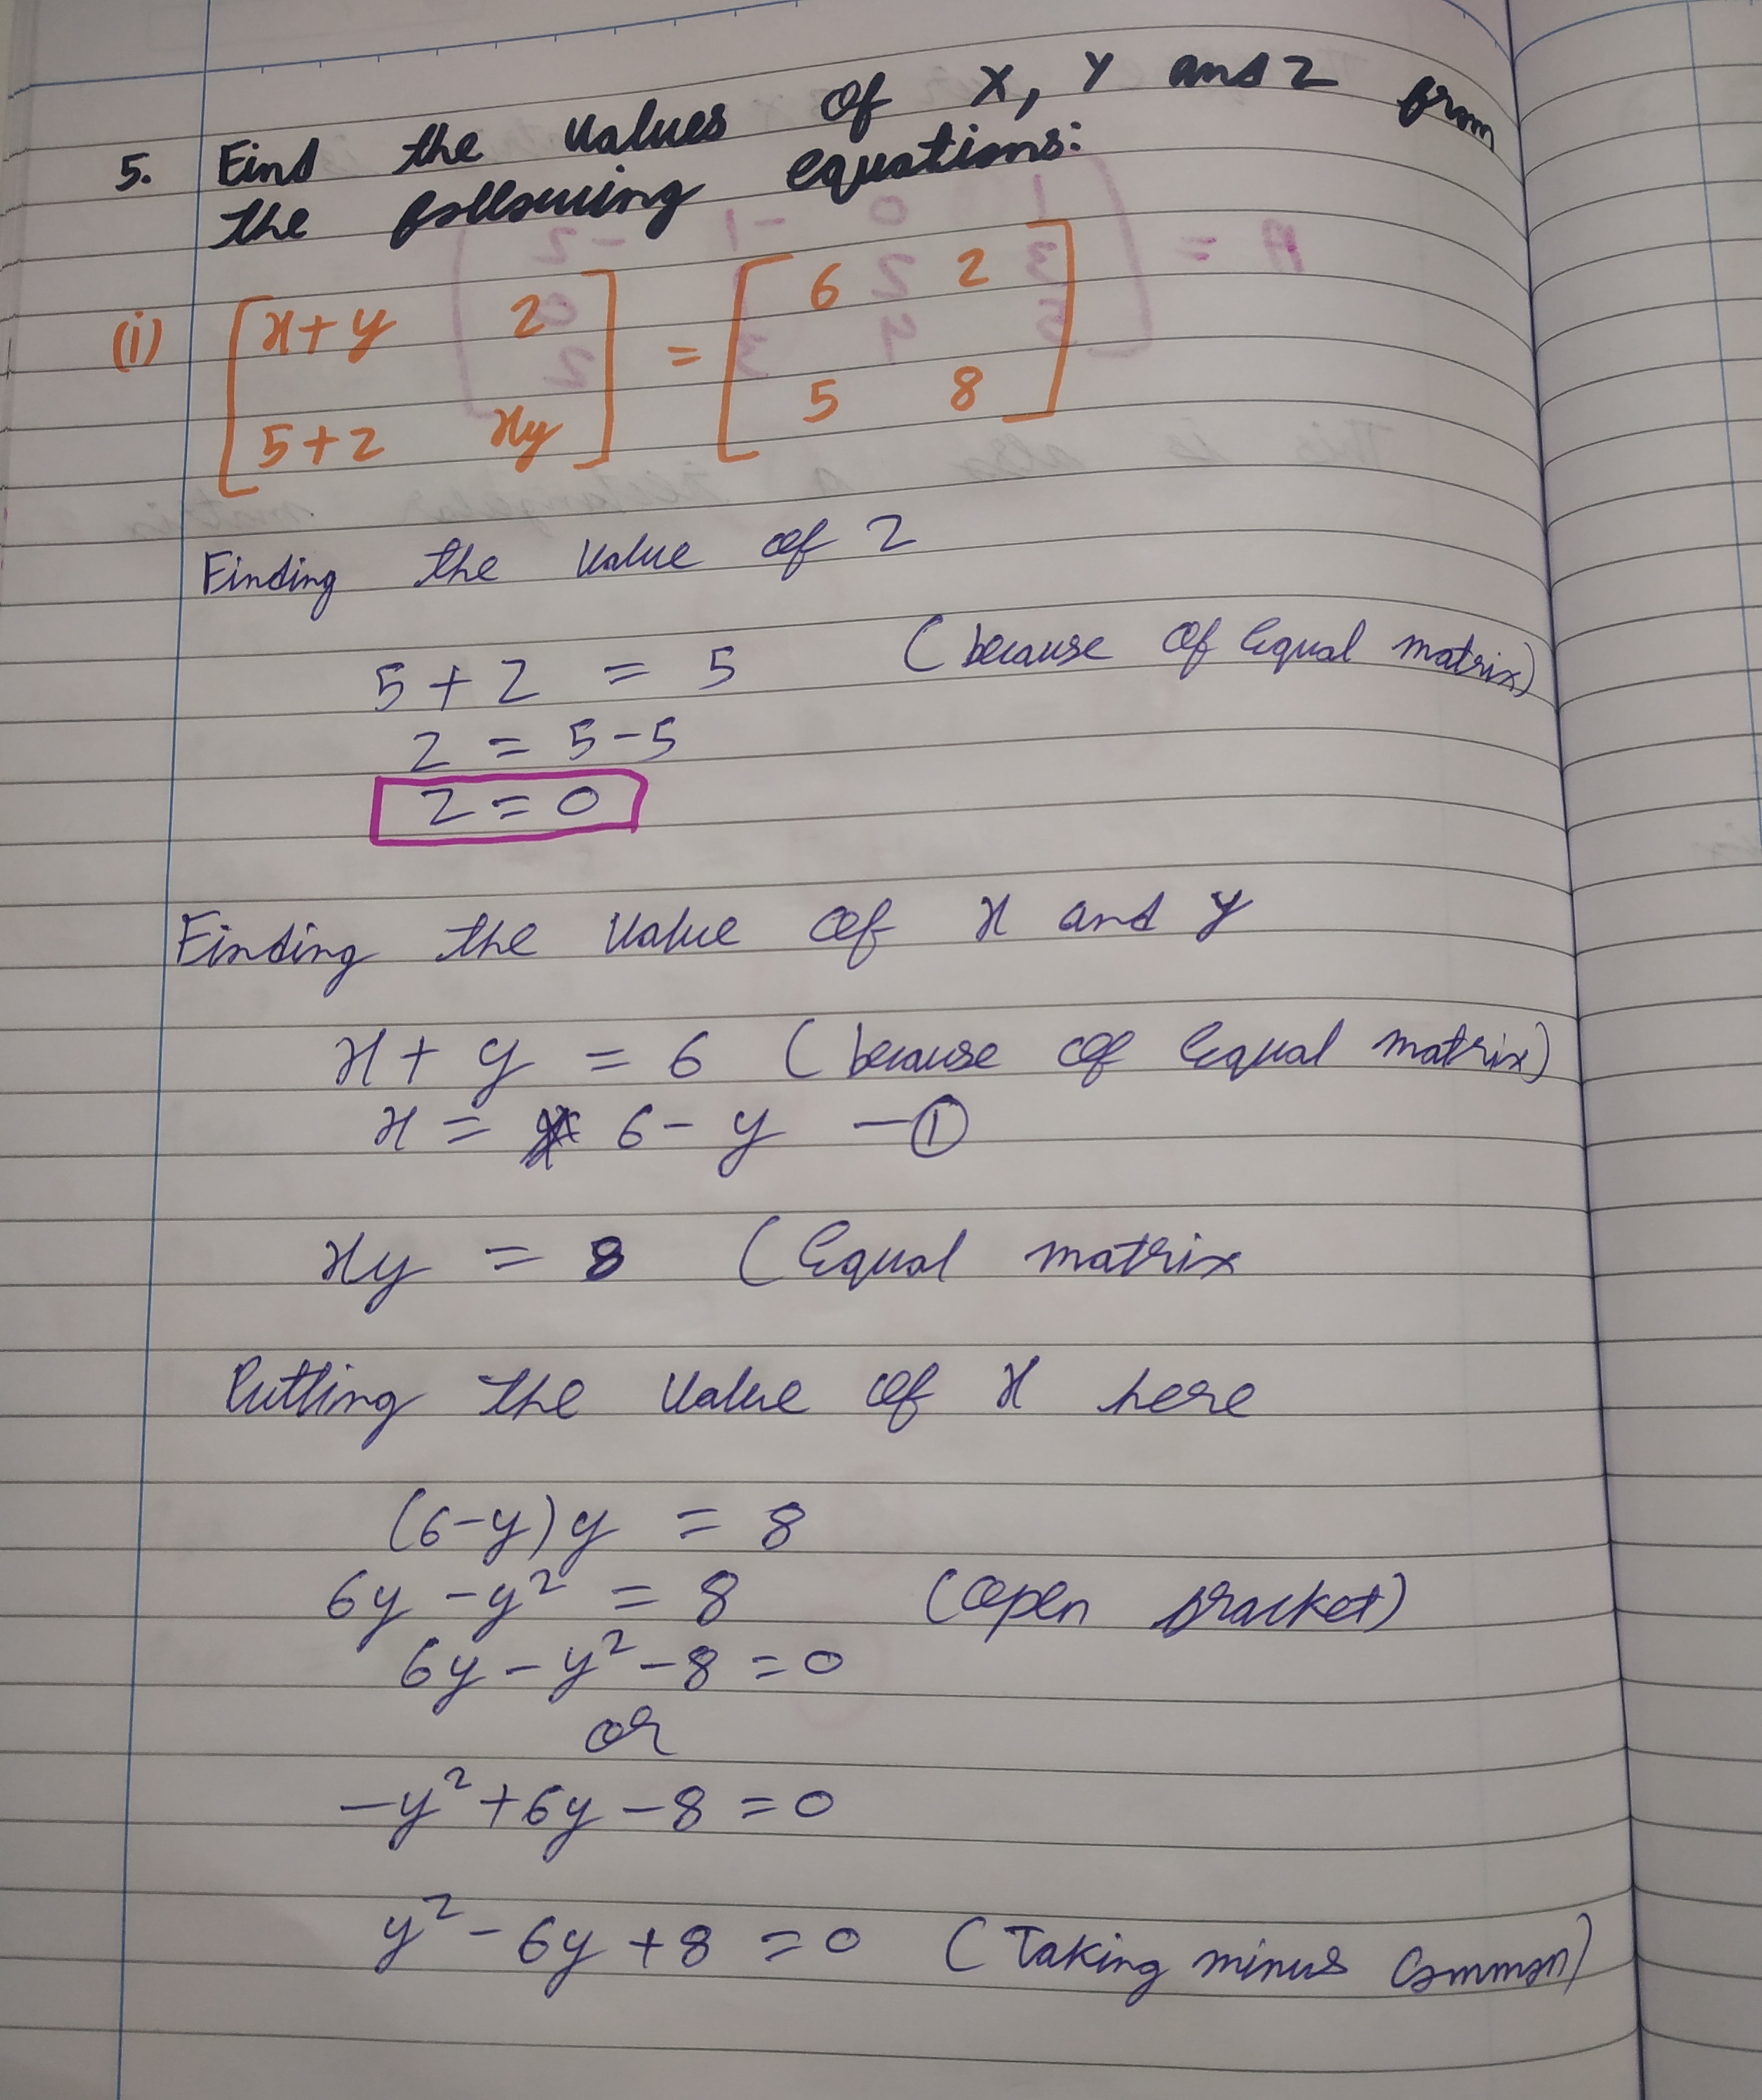 5. Find the values of x, y and z from
the following equations:
(i) [x+y 2] = [6 2]
[5+z xy] [5 8]
Finding the value of z
5+z = 5 (because of equal matrix)
z = 5-5
z = 0
Finding the value of x and y
x+y = 6 (because of equal matrix)
x = 6-y —①
xy = 8 (equal matrix
Putting the value of x here
(6-y)y = 8
6y-y² = 8 (open bracket)
6y-y²-8=0
or
-y²+6y-8=0
y²-6y+8=0 (Taking minus common)